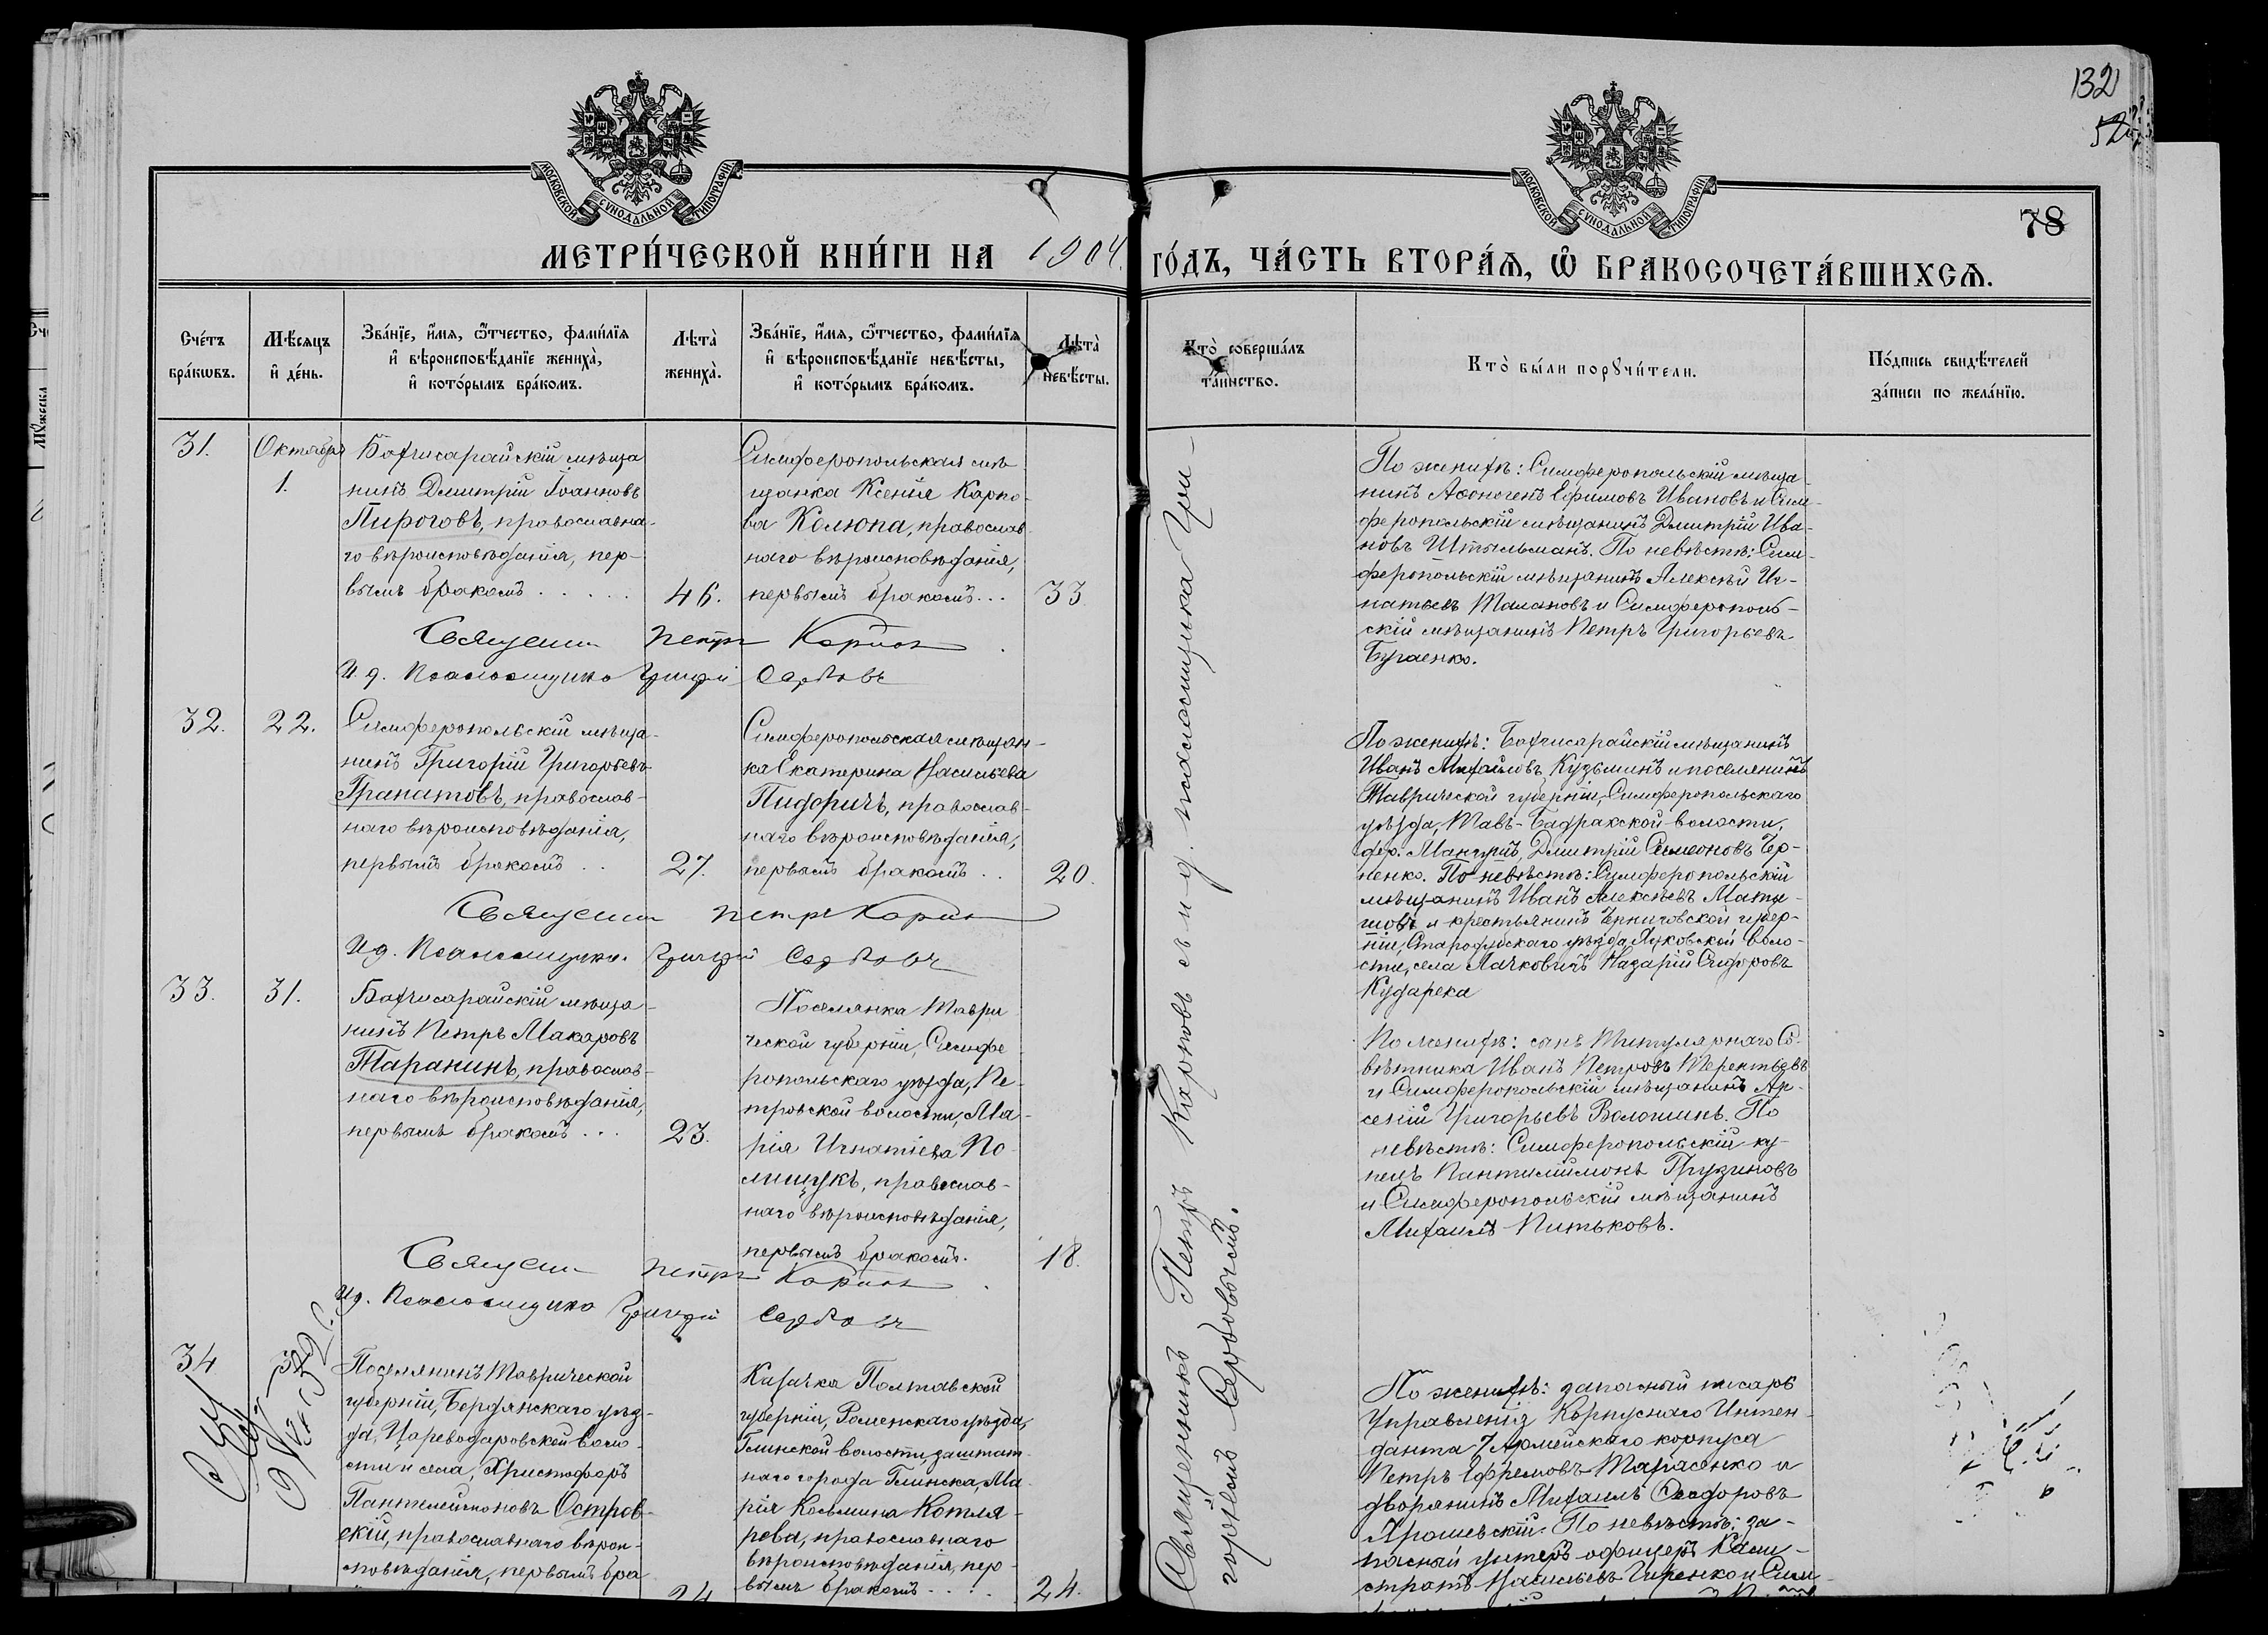 132
78
МОСКОВСКОЙ СУНОДАЛЬНОЙ ТИПОГРАФІИ
МОСКОВСКОЙ СУНОДАЛЬНОЙ ТИПОГРАФІИ
МЕТРИ́ЧЕСКОЙ КНИ́ГИ НА 1904. ГО́ДЪ, ЧА́СТЬ ВТОРА́Ѧ, Ѿ БРАКОСОЧЕТА́ВШИХСѦ.
Сче́тъ бра́кѡвъ.
Мѣ́сяцъ и҆ де́нь.
Зва́нїе, и҆́мя, ѻ҆́тчество, фами́лїя
и҆ вѣроисповѣ́данїе жениха̀,
и҆ кото́рымъ бра́комъ.
Лѣта̀ жениха̀.
Зва́нїе, и҆́мя, ѻ҆́тчество, фами́лїя
и҆ вѣроисповѣ́данїе невѣ́сты,
и҆ кото́рымъ бра́комъ.
Лѣта̀ невѣ́сты.
Кто̀ соверша́лъ та́инство.
Кто̀ бы́ли порꙋчи́тели.
По́дпись свидѣ́телей
за́писи по жела́нїю.
31.
Октября
1.
Бахчисарайскій мѣща-
нинъ Дмитрій Іоанновъ
Пироговъ, православна-
го вѣроисповѣданія, пер-
вымъ бракомъ . . . . .
46.
Симферопольская мѣ-
щанка Ксенія Карпо-
ва Колюпа, православ-
наго вѣроисповѣданія,
первымъ бракомъ . . .
33
По женихѣ: Симферопольскій мѣща-
нинъ Аѳиногенъ Ефимовъ Ивановъ и Сим-
феропольскій мѣщанинъ Дмитрій Ива-
новъ Штыльманъ. По невѣстѣ: Сим-
феропольскій мѣщанинъ Алексѣй Иг-
натьевъ Талановъ и Симферополь-
скій мѣщанинъ Петръ Григорьевъ
Бугаенко.
Священникъ Петръ Карповъ
И. д. Псаломщика Григорій Сербовъ
32.
22.
Симферопольскій мѣща-
нинъ Григорій Григорьевъ
Гранатовъ, православ-
наго вѣроисповѣданія,
первымъ бракомъ . .
27.
Симферопольская мѣщан-
ка Екатерина Васильева
Пидоричъ, православ-
наго вѣроисповѣданія,
первымъ бракомъ . .
20.
По женихѣ: Бахчисарайскій мѣщанинъ
Иванъ Михайловъ Кузьминъ и поселянинъ
Таврической губерніи, Симферопольскаго
уѣзда, Тавъ-Бадракской волости,
дер. Мангушъ, Дмитрій Симеоновъ Чер-
ненко. По невѣстѣ: Симферопольскій
мѣщанинъ Иванъ Алексѣевъ
и крестьянинъ Черниговской губер-
ніи, Стародубскаго уѣзда, волo-
сти, села Назарій Сидоровъ
Священникъ Петръ Карповъ
И. д. Псаломщика Григорій Сербовъ
33.
31.
Бахчисарайскій мѣща-
нинъ Петръ Макаровъ
Таранинъ, православ-
наго вѣроисповѣданія,
первымъ бракомъ . . .
23.
Поселянка Таври-
ческой губерніи, Симфе-
ропольскаго уѣзда, Пе-
тровской волости, Ма-
рія Игнатіева По-
лищукъ, православ-
наго вѣроисповѣданія,
первымъ бракомъ.
18.
По женихѣ: сынъ Титулярнаго Со-
вѣтника Иванъ Петровъ Терентьевъ
и Симферопольскій мѣщанинъ Ар-
сеній Григорьевъ Волошинъ. По
невѣстѣ: Симферопольскій ку-
пецъ Пантилиймонъ Грузиновъ
и Симферопольскій мѣщанинъ
Михаилъ Питьковъ.
Священникъ Петръ Карповъ
И. д. Псаломщика Григорій Сербовъ
34
Поселянинъ Таврической
губерніи, Бердянскаго уѣз-
да, Цареводаровской воло-
сти и села, Христофоръ
Пантелеимоновъ Остров-
скій, православнаго вѣрои-
споведанія, первымъ бра
24
Казачка Полтавской
губерніи, Роменскаго уѣзда,
Глинской волости, заштат-
наго города Глинска, Ма-
рія Косьмина Котля-
рова, православнаго
вѣроисповѣданія, пер-
вымъ бракомъ . . . .
24.
По женихѣ: запасный писарь
Управленія Корпуснаго Интен-
данта 7 Армейскаго корпуса
Петръ Ефремовъ Тарасенко и
дворянинъ Михаилъ Ѳеодоровъ
Ярошевскій. По невѣстѣ: за-
пасный унтеръ-офицеръ Кали-
стратъ Васильевъ и Сим-
Священникъ Петръ Карповъ съ и. д. псаломщика Гри-
горіемъ Сербовымъ.